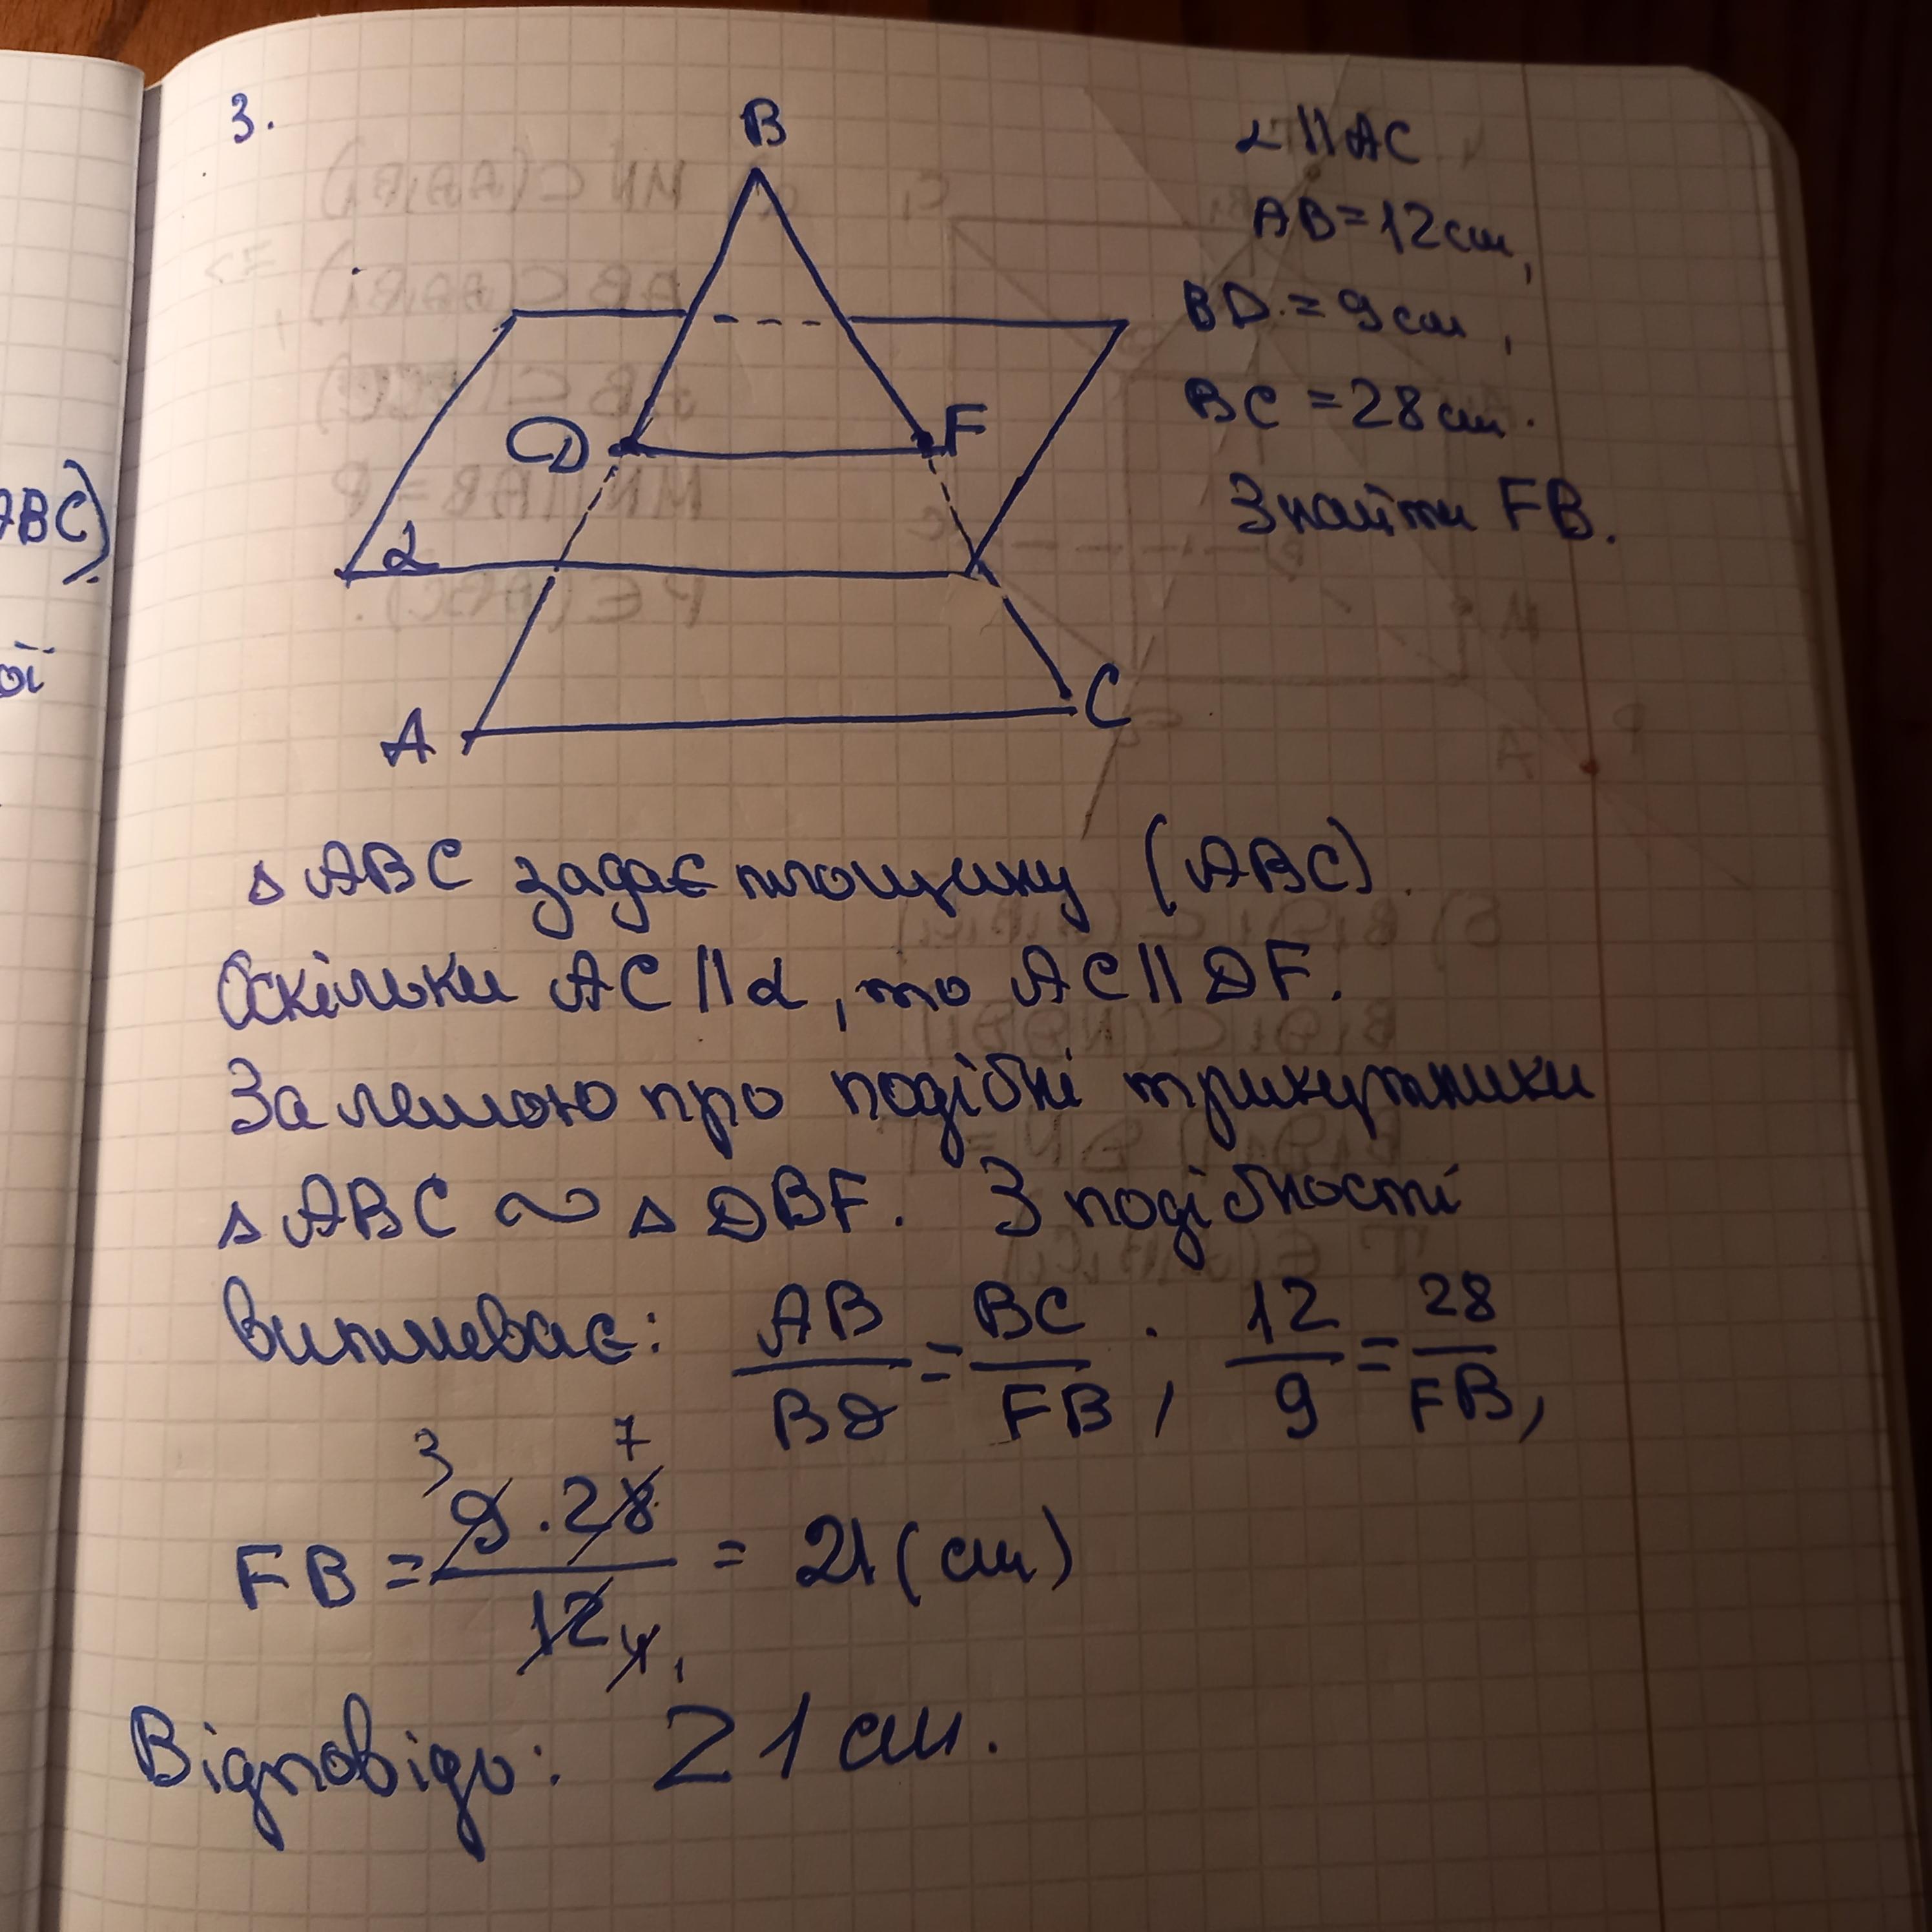 3.
B
α || AC
AB = 12 см,
BD = 9 см,
BC = 28 см.
Знайти FB.
D
F
α
A
C
АВС)
ої
△ ABC задає площину (ABC).
Оскільки AC || α, то AC || DF.
За лемою про подібні трикутники
△ ABC ∼ △ DBF. З подібності
випливає: AB/BD = BC/FB, 12/9 = 28/FB,
FB = 9·28/12 = 21 (см)
3 7 4 1
Відповідь: 21 см.